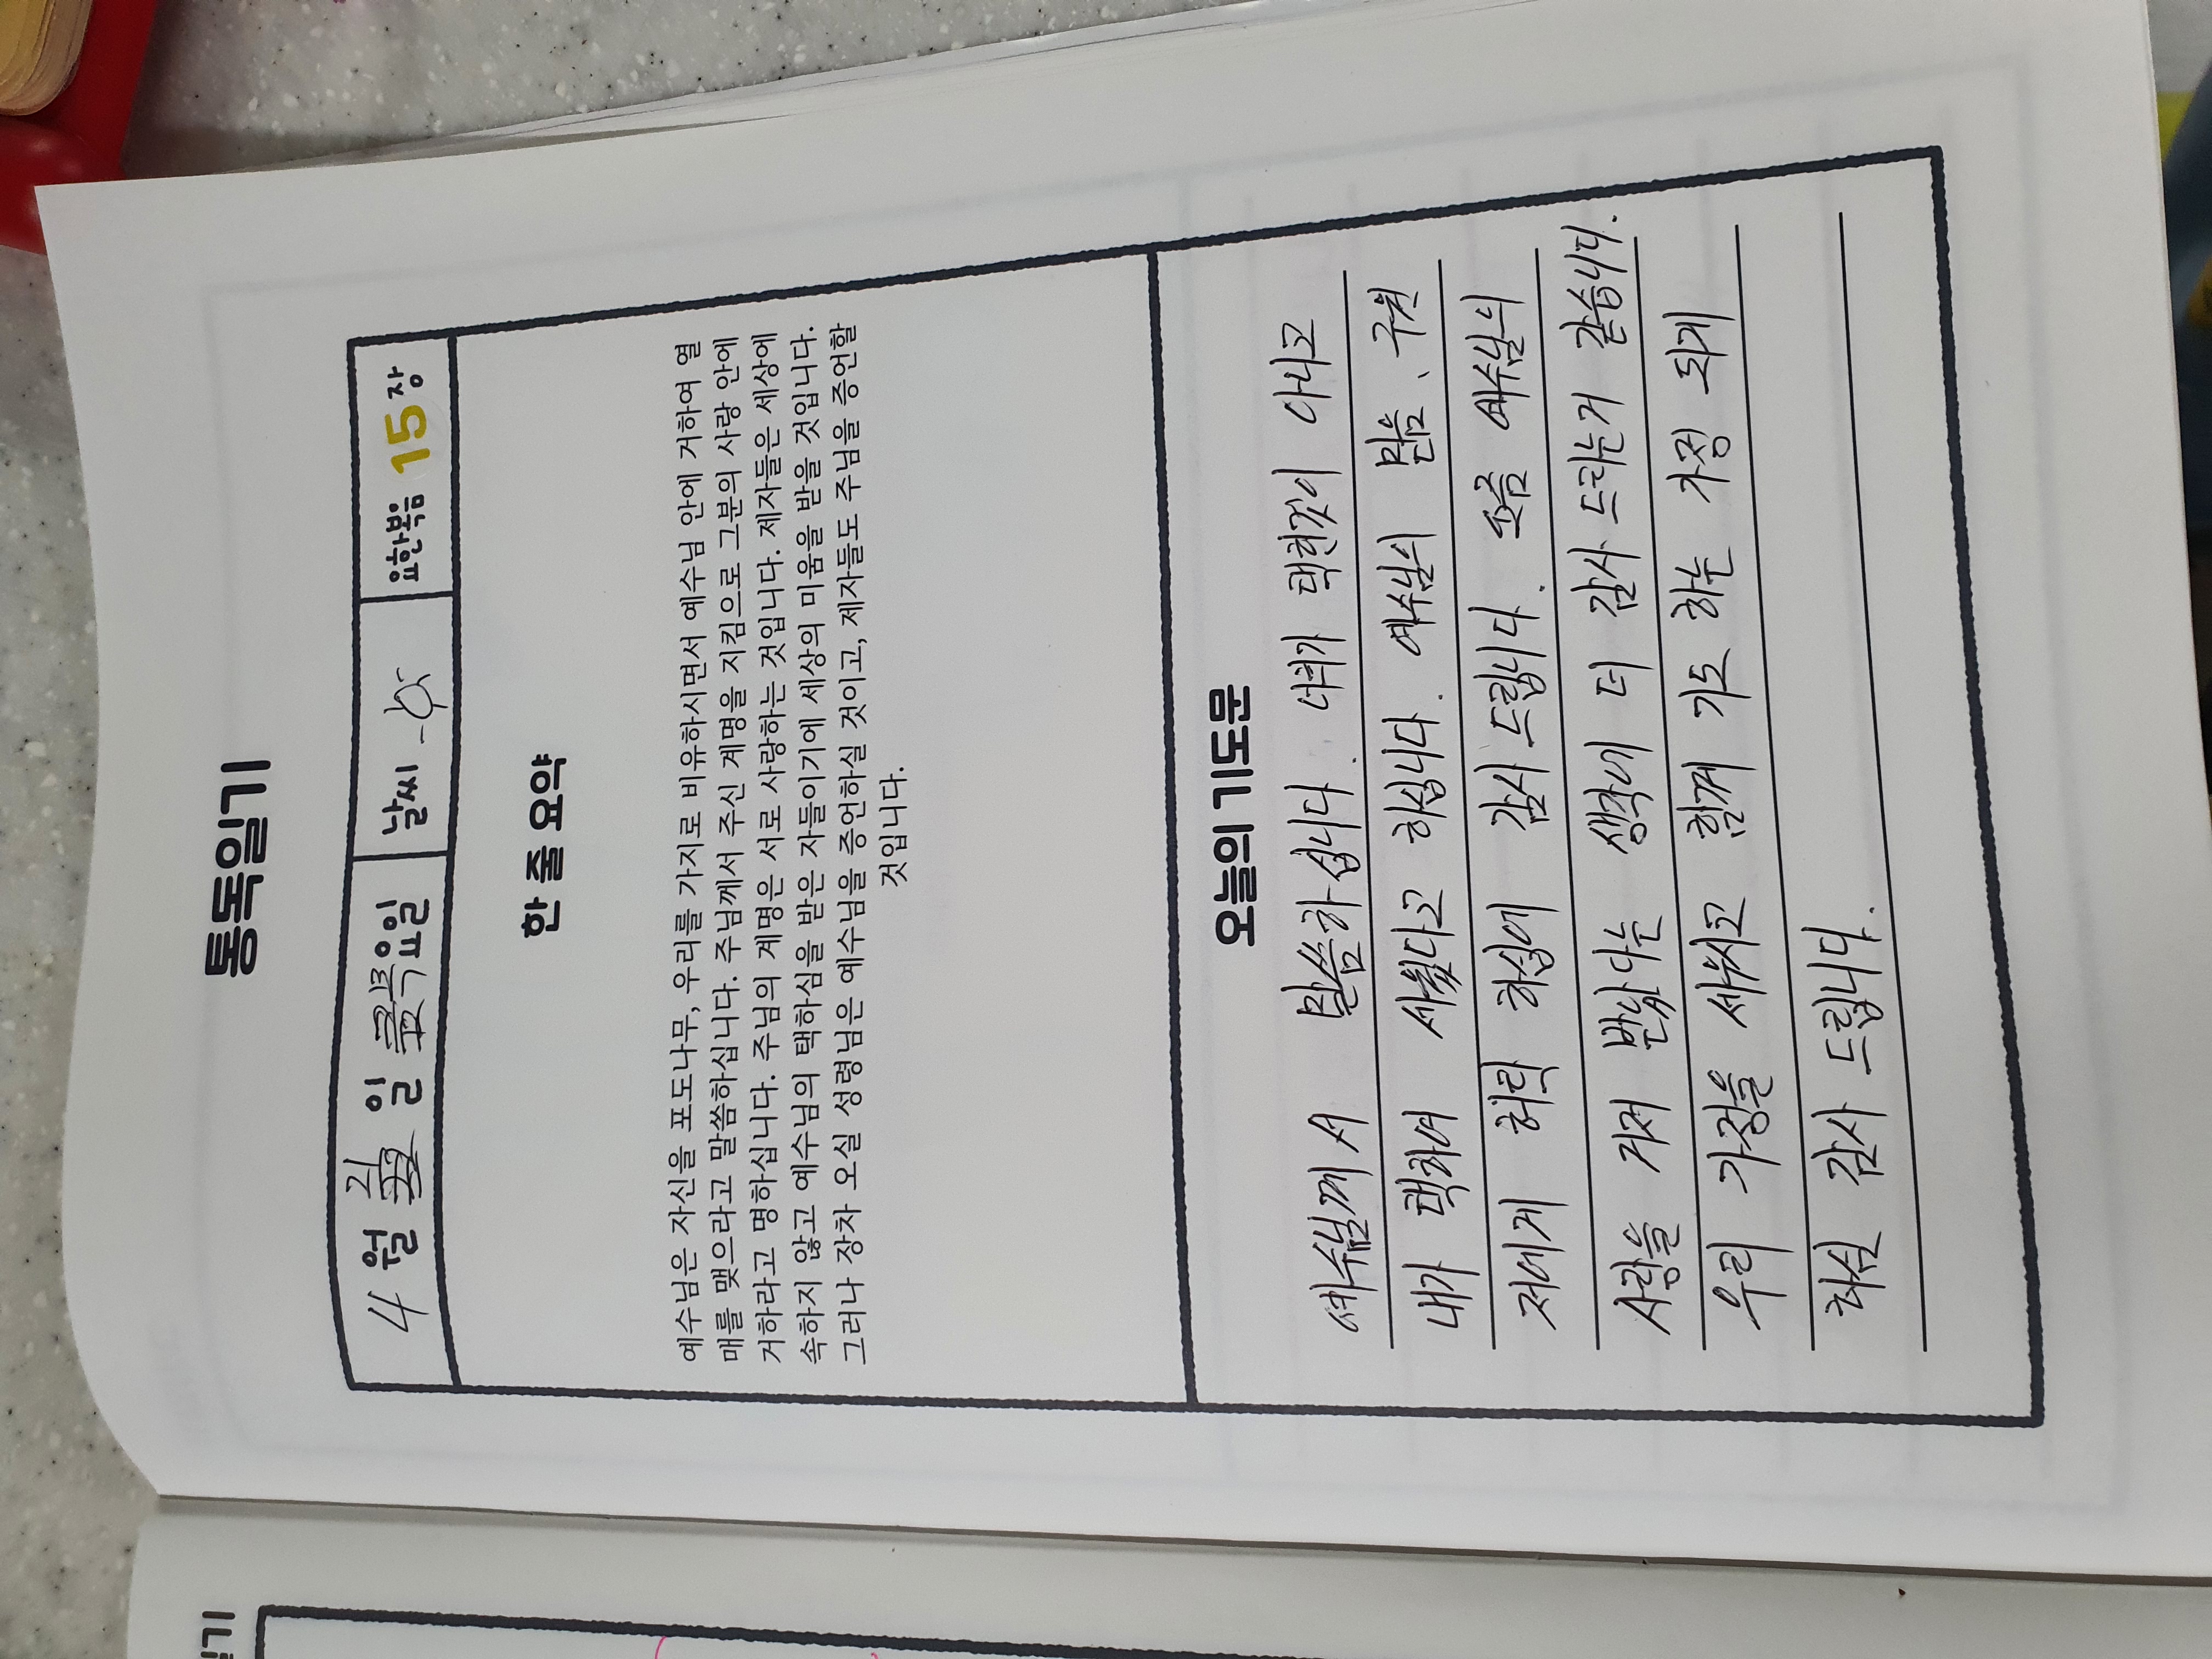 통독일기
4월 21일 목요일 날씨 요한복음 15장
한 줄 요약
예수님은 자신을 포도나무, 우리를 가지로 비유하시면서 예수님 안에 거하여 열
매를 맺으라고 말씀하십니다. 주님께서 주신 계명을 지킴으로 그분의 사랑 안에
거하라고 명하십니다. 주님의 계명은 서로 사랑하는 것입니다. 제자들은 세상에
속하지 않고 예수님의 택하심을 받은 자들이기에 세상의 미움을 받을 것입니다.
그러나 장차 오실 성령님은 예수님을 증언하실 것이고, 제자들도 주님을 증언할
것입니다.
오늘의 기도문
예수님께서 말씀하십니다. 너희가 택한것이 아니고
내가 택하여 세웠다고 하십니다. 예수님의 믿음, 구원
저에게 허락 하심에 감사 드립니다. 요즘 예수님의
사랑을 거저 받았다는 생각에 더 감사 드리는거 같습니다.
우리 가정을 세우시고 함께 기도 하는 가정 되게
하심 감사 드립니다.
일기